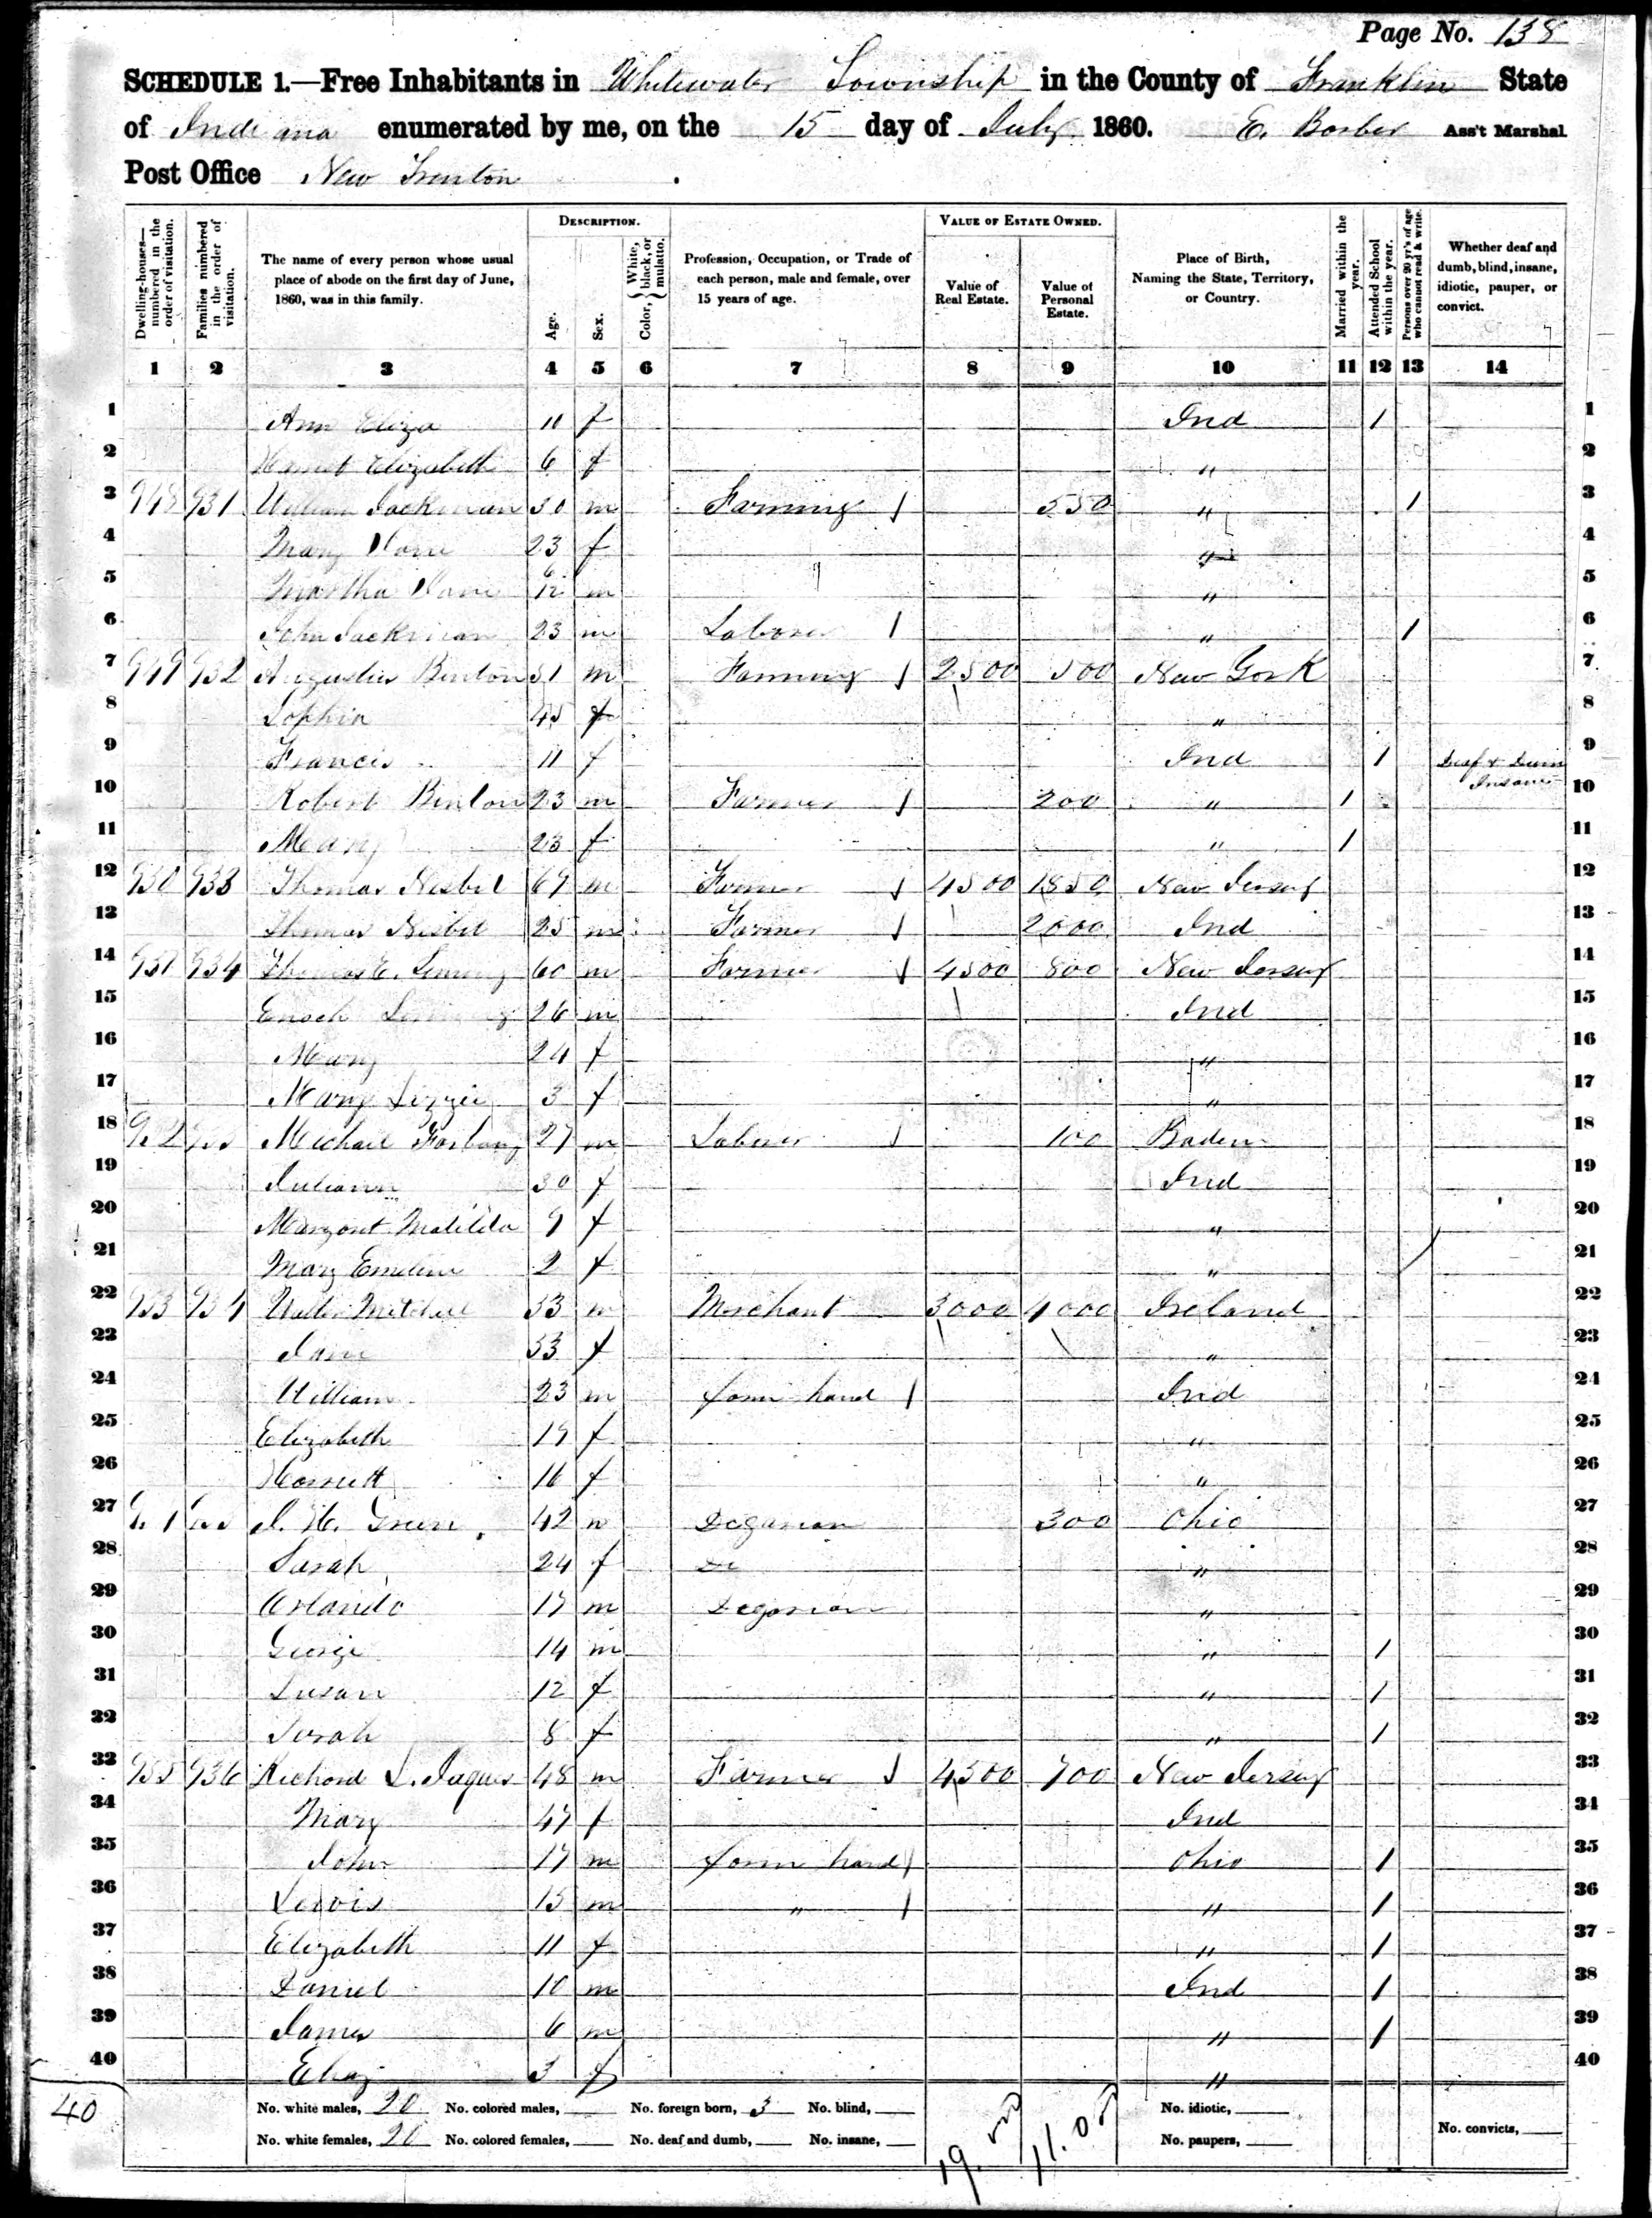 Page No. 138
SCHEDULE 1.—Free Inhabitants in Whitewater Township in the County of Franklin State
of Indiana enumerated by me, on the 15 day of July 1860. E. Barber Ass't Marshal
Post Office New Trenton
Dwelling-houses—numbered in the order of visitation.
Families numbered in the order of visitation.
The name of every person whose usual place of abode on the first day of June, 1860, was in this family.
DESCRIPTION.
Age.
Sex.
Color, { White, black, or mulatto.
Profession, Occupation, or Trade of each person, male and female, over 15 years of age.
VALUE OF ESTATE OWNED.
Value of Real Estate.
Value of Personal Estate.
Place of Birth, Naming the State, Territory, or Country.
Married within the year.
Attended School within the year.
Persons over 20 yr's of age who cannot read & write.
Whether deaf and dumb, blind, insane, idiotic, pauper, or convict.
1 2 3 4 5 6 7 8 9 10 11 12 13 14
1 Ann Eliza 11 f Ind / 1
2 Elizabeth 6 f " 2
3 948 931 William Jackman 30 m Farming / 550 " / 3
4 Mary Jane 23 f " 4
5 Martha Jane 6/12 m " 5
6 John Jackman 23 m Laborer / " / 6
7 949 932 Augustus Binton 51 m Farming / 2500 500 New York 7
8 Sophia 45 f " 8
9 Francis 11 f Ind / Deaf & Dum 9
Insane
10 Robert Binton 23 m Farmer / 200 " / 10
11 Mary 23 f " / 11
12 950 933 Thomas Nesbit 67 m Farmer / 4500 1850 New Jersey 12
13 Thomas Nesbit 25 m Farmer / 2000 Ind 13
14 951 934 Thomas E. 60 m Farmer / 4500 800 New Jersey 14
15 Enoch 26 m Ind 15
16 Mary 24 f " 16
17 Mary Lizzie 3 f " 17
18 952 Michael 27 m Laborer / 100 Baden 18
19 Juliann 30 f Ind 19
20 Margaret Matilda 9 f " 20
21 Mary Emeline 2 f " 21
22 953 934 Mitchell 53 m Merchant 3000 4000 Ireland 22
23 Jane 53 f " 23
24 William 23 m farm hand / Ind 24
25 Elizabeth 19 f " 25
26 Harriett 16 f " 26
27 J. H. Green 42 m 300 Ohio 27
28 Sarah 24 f " 28
29 Orlando 17 m " 29
30 George 14 m " / 30
31 Susan 12 f " / 31
32 Sarah 8 f " / 32
33 955 936 Richard L. Jaques 48 m Farmer / 4500 700 New Jersey 33
34 Mary 47 f Ind 34
35 John 17 m farm hand / Ohio / 35
36 Lewis 15 m " / " / 36
37 Elizabeth 11 f " / 37
38 Daniel 10 m Ind / 38
39 James 6 m " / 39
40 3 f " 40
40
No. white males, 20 No. colored males, No. foreign born, 3 No. blind, No. idiotic,
No. white females, 20 No. colored females, No. deaf and dumb, No. insane, No. paupers, No. convicts,